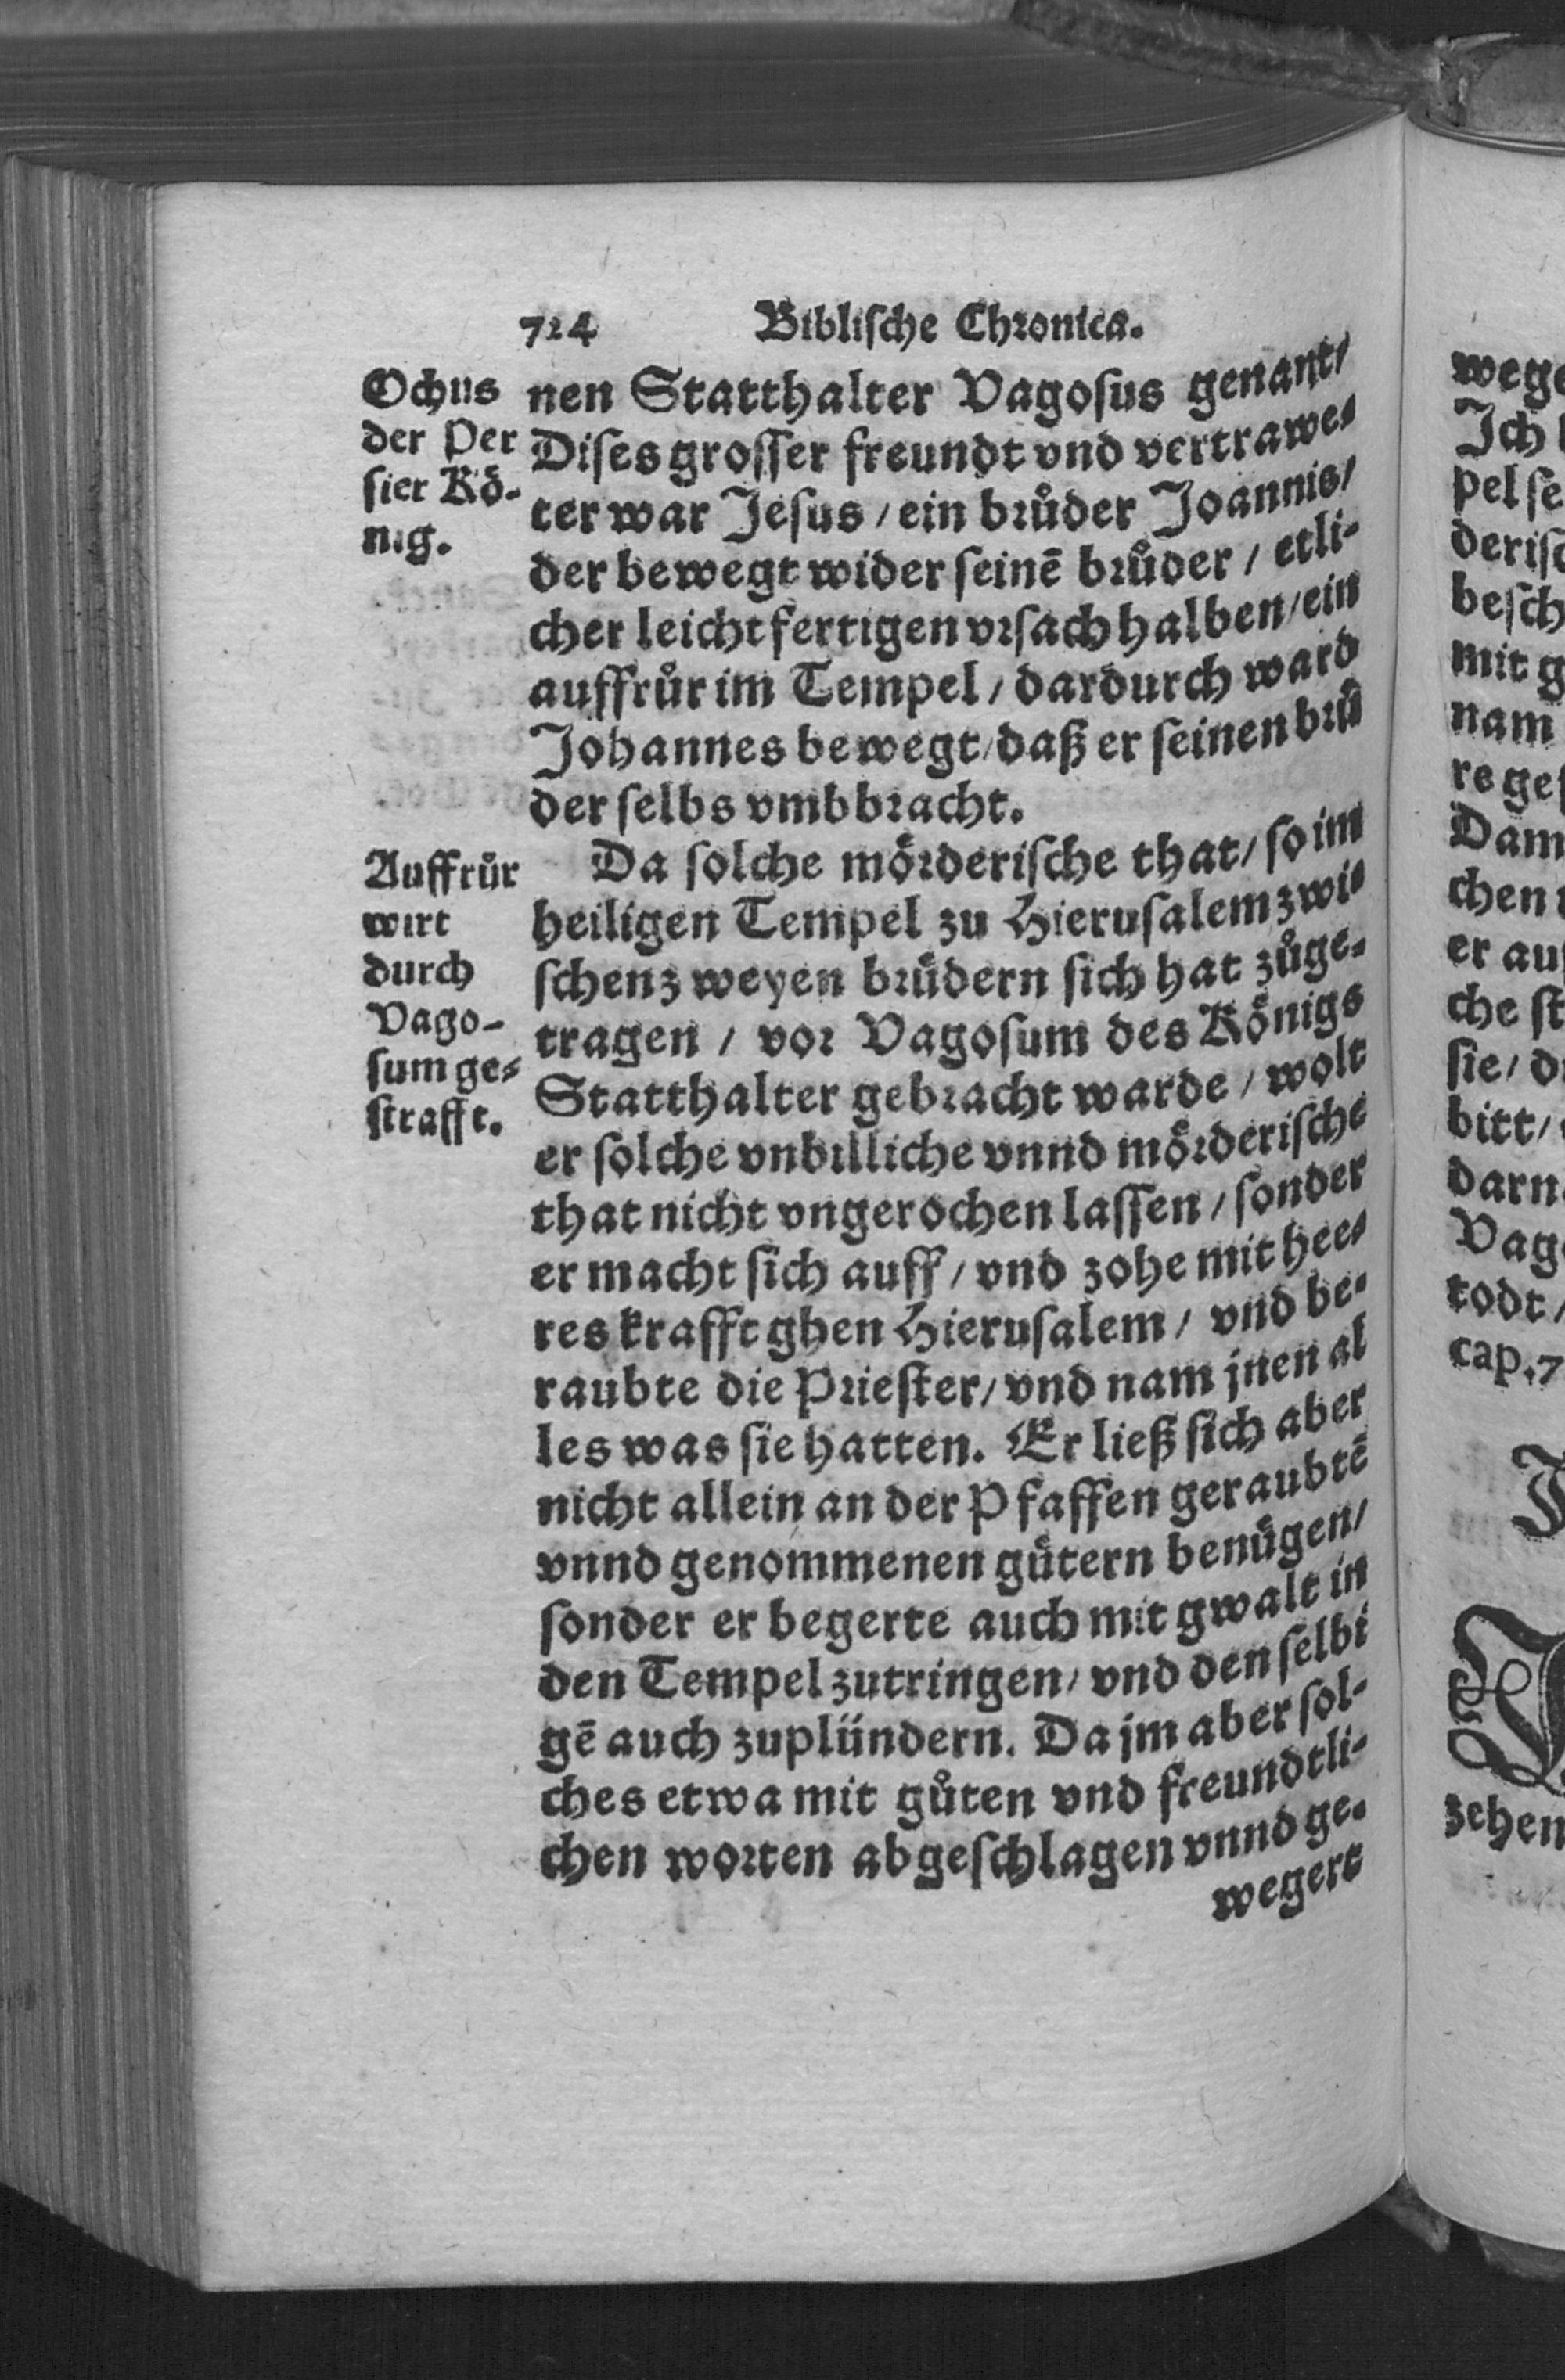 724 Biblische Chronica.
Ochus
der Per
sier Kö-
nig.
nen Statthalter Vagosus genant/
Dises grosser freundt vnd vertrawe-
ter war Jesus / ein brůder Joannis/
der bewegt wider seinē brůder / etli-
cher leichtfertigen vrsach halben/ein
auffrůr im Tempel / dardurch ward
Johannes bewegt/daß er seinen brů
der selbs vmbbracht.
Auffrůr
wirt
durch
Vago-
sum ge-
strafft.
Da solche mörderische that/ so im
heiligen Tempel zu Hierusalem zwi-
schen zweyen brüdern sich hat zůge-
tragen / vor Vagosum des Königs
Statthalter gebracht warde / wolt
er solche vnbilliche vnnd mörderische
that nicht vngerochen lassen / sonder
er macht sich auff / vnd zohe mit hee-
res krafft ghen Hierusalem / vnd be-
raubte die Priester/ vnd nam jnen al
les was sie hatten. Er ließ sich aber
nicht allein an der Pfaffen geraubtē
vnnd genommenen gütern benügen/
sonder er begerte auch mit gwalt in
den Tempel zutringen/ vnd den selbi
gē auch zuplündern. Da jm aber sol-
ches etwa mit gůten vnd freundtli-
chen worten abgeschlagen vnnd ge-
wegert
Ich
pel se
mit g
nam
re ges
Dam
er au
che st
sie/ d
bitt/
darn
Vag
todt/
cap.7
zehen